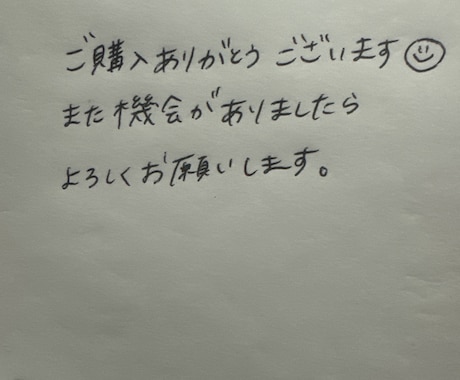 ご購入ありがとうございます☺
また機会がありましたら
よろしくお願いします。